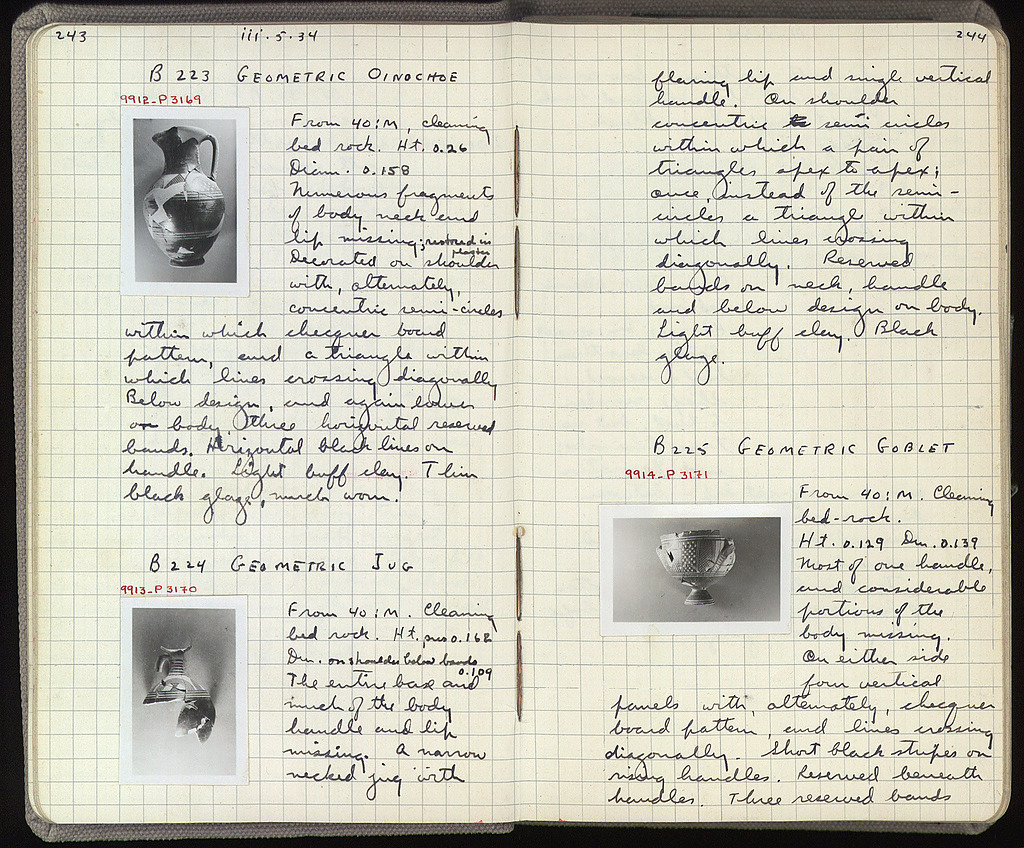 243
iii. 5. 34
B 223 GEOMETRIC OINOCHOE
9912-P 3169
From 40:M, cleaning
bed rock. Ht. 0.26
Diam. 0.158
Numerous fragments
of body neck and
lip missing; restored in
plaster
Decorated on shoulder
with, alternately,
concentric semi-circles
within which checquer board
pattern, and a triangle within
which lines crossing diagonally
Below design, and again lower
on body, three horizontal reserved
bands. Horizontal black lines on
handle. Light buff clay. Thin
black glaze, much worn.
B 224 GEOMETRIC JUG
9913-P 3170
From 40:M. Cleaning
bed rock. Ht. pres 0.162
Dm. on shoulder below bands
0.109
The entire base and
much of the body
handle and lip
missing. A narrow
necked jug with
244
flaring lip and single vertical
handle. On shoulder
concentric semi circles
within which a pair of
triangles apex to apex;
once, instead of the semi-
circles a triangle within
which lines crossing
diagonally. Reserved
bands on neck, handle
and below design on body.
Light buff clay. Black
glaze.
B 225 GEOMETRIC GOBLET
9914-P 3171
From 40:M. Cleaning
bed-rock.
Ht. 0.129 Dm. 0.139
Most of one handle,
and considerable
portions of the
body missing.
On either side
four vertical
panels with, alternately, checquer
board pattern, and lines crossing
diagonally. Short black stripes on
rising handles. Reserved beneath
handles. Three reserved bands